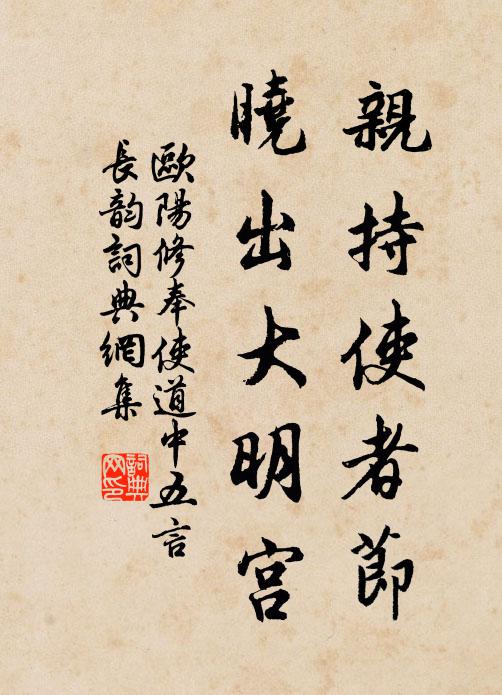 親持使者節
曉出大明宮
歐陽修奉使道中五言
長韵詞典網集
詞典
网印